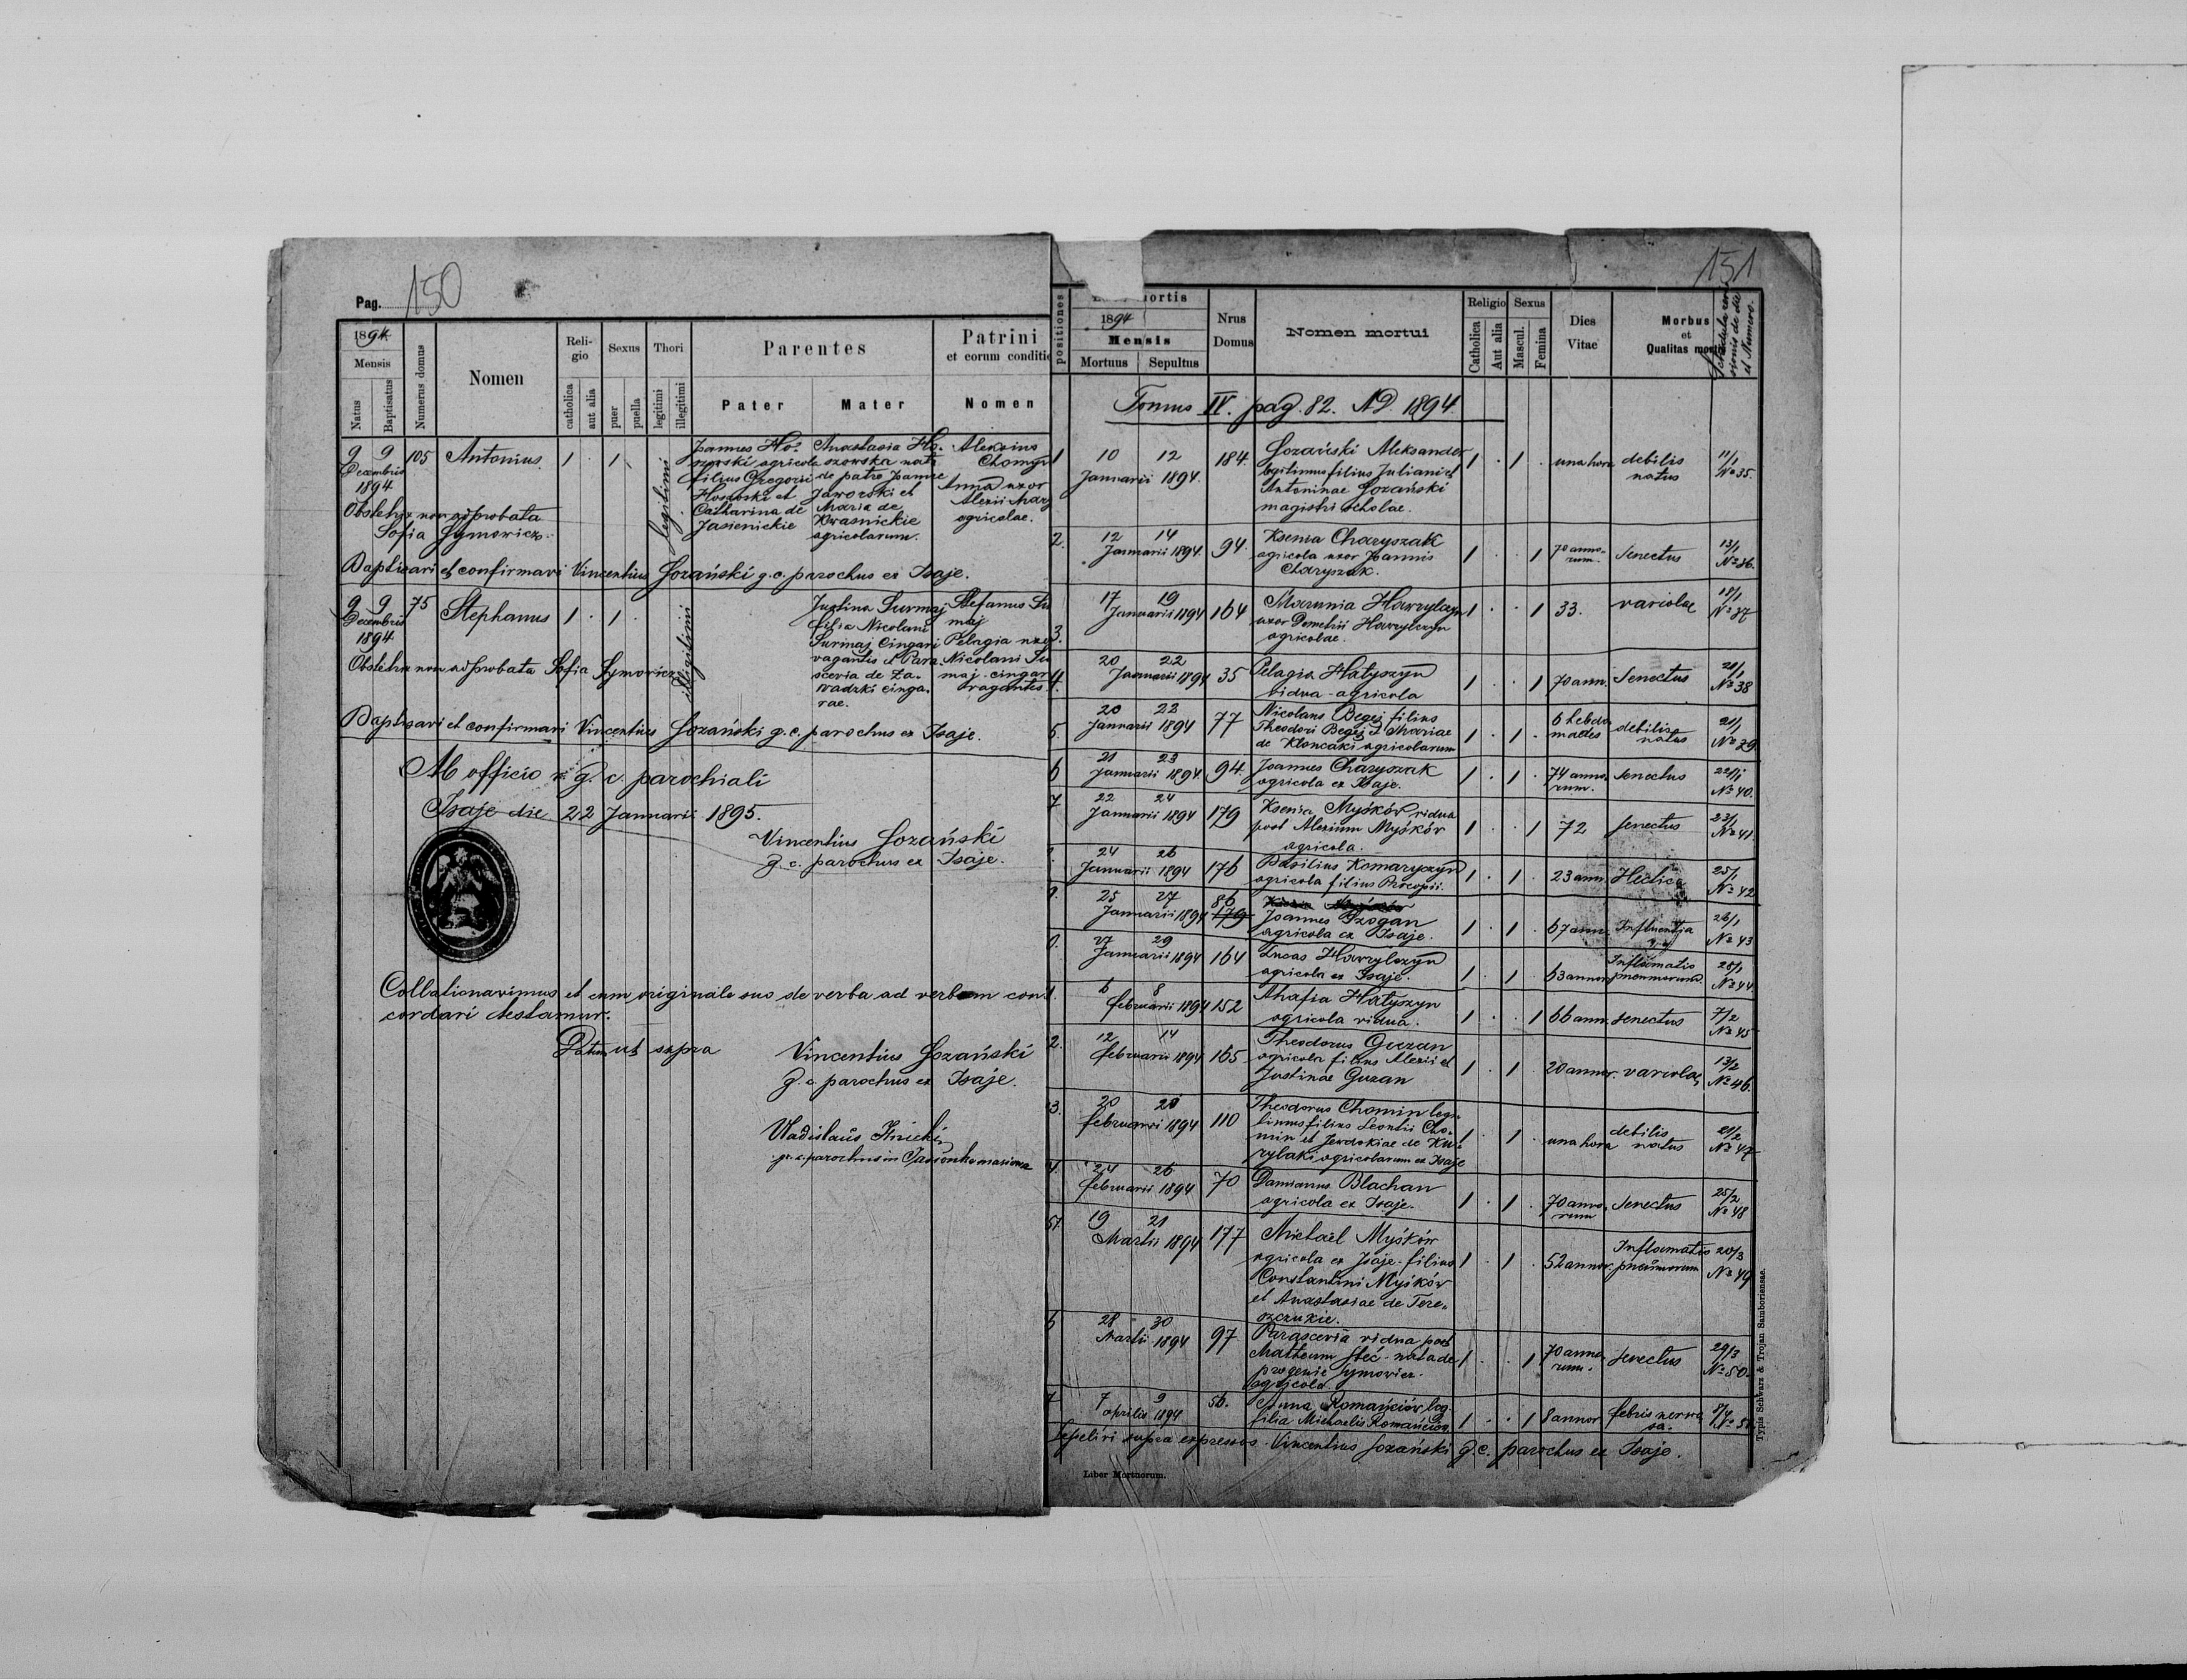 Pag. 150
1894
Mensis
Natus
Baptisatus
Numerus domus
Nomen
Reli-
gio
catholica
aut alia
Sexus
puer
puella
Thori
legitimi
illegitimi
Parentes
Pater
Mater
Patrini
et eorum conditio
Nomen
9 9 105 Antonius. 1 . 1 .
Decembris
1894
legitimi
Joannes Ho-
szowski agricola
filius Gregorii
Hoszowski et
Catharina de
Jasienickie
Anastasia Ho-
szowska nata
de patre Joanne
Jaworski et
Maria de
Kwasnickie
agricolarum.
Aleksius
Chomyn
Anna uxor
Alexii Mary
agricolae.
Obstetrix non adprobata
Sofia Symowicz.
Baptisavi et confirmavi Vincentius Łozański g.c. parochus ex Isaje.
9 9 75 Stephanus 1 . 1 .
Decembris
1894
illegitimi
Justina Surmaj
filia Nicolaui
Surmaj Cingari
vagantis et Para-
scevia de Za-
wadzki cinga-
rae.
Stefanus Su
maj
Pelagia uxor
Nicolaui Su
maj cingar
vagantes.
Obstetrix non adprobata Sofia Symowicz
Baptisavi et confirmavi Vincentius Łozański g.c. parochus ex Isaje.
Ab officio g. c. parochiali
Isaje die 22 Januarii 1895.
Vincentius Łozański
g. c. parochus ex Isaje.
Collationavimus et cum originale suo de verba ad verbum con-
cordari testamur.
Datum ut supra
Vincentius Łozański
g. c. parochus ex Isaje.
gr. c. parochus in
151
positiones
mortis
1894
Mensis
Mortuus
Sepultus
Nrus
Domus
Nomen mortui
Religio
Catholica
Aut alia
Sexus
Mascul.
Femina
Dies
Vitae
Morbus
et
Qualitas mortis
et Numero.
Tomus IV. pag. 82. AD. 1894
1 10 12 184. Łozański Aleksander 1 . 1 . una hora debilis 11/1
Januarii 1894. legitimus filius Juliani et natus No 35.
Antoninae Łozański
magistri scholae.
2. 12 14 94. Ksenia Charyszak 1 . . 1 70 anno- Senectus 13/1
Januarii 1894. agricola uxor Joannis rum. No 36.
Charyszak.
3. 17 19 164 Marunia Hawrylczyn 1 . . 1 33. variolae 18/1
Januarii 1894 uxor Demetrii Hawrylczyn No 37
agricolae.
4. 20 22 35 Pelagia Hatyszyn 1 . . 1 70 ann. Senectus 21/1
Januarii 1894 vidua - agricola No 38
5. 20 22 77 Nicolaus Begej filius 1 . 1 . 6 hebdo- debilis 21/1
Januarii 1894 Theodori Begej et Mariae mades natus No 39
de Kloncaki agricolarum
6 21 23 94. Joannes Charyszak 1 . 1 . 74 anno- Senectus 22/1
Januarii 1894. agricola ex Isaje. rum. No 40.
7 22 24 179 Ksenia Myśków vidua 1 . . 1 72 Senectus 23/1
Januarii 1894 post Alexium Myśków No 41.
agricola.
24 26 176 Basilius Komaryczyn 1 . 1 . 23 ann. Hectica 25/1
Januarii 1894 agricola filius Procopii. No 42
9. 25 27 86
Januarii 1894 179 Joannes Przogan 1 . 1 . 67 ann. Influentja 26/1
agricola ex Isaje. No 43
0. 27 29 164 Lucas Hawrylczyn 1 . 1 . 63 annor. Inflamatio 28/1
Januarii 1894 agricola ex Isaje. pneumorum No 44
1. 6 8 152 Ahafia Hatyszyn 1 . . 1 66 ann. Senectus 7/2
februarii 1894 agricola vidua. No 45
2. 12 14 165 Theodorus Guzan 1 . 1 . 20 annor. variolae 13/2
februarii 1894 agricola filius Alexii et No 46.
Justinae Guzan
3. 20 20 110 Theodorus Chomin legi- 1 . 1 . una hora debilis 21/2
februarii 1894 timus filius Leontii Cho- natus No 47
min et Jewdokiae de Ku-
rylaki agricolarum ex Isaje
4. 24 26 70 Damianus Blachan 1 . 1 . 70 anno- Senectus 25/2
februarii 1894 agricola ex Isaje. rum No 48
5. 19 21 177 Michaël Myśków 1 . 1 . 52 annor. Inflamatio 20/3
Martii 1894 agricola ex Isaje - filius pneumorum No 49
Constantini Myśków
et Anastasiae de Tere-
szczukie.
6 28 30 97 Parascevia vidua post 1 . . 1 70 anno- Senectus 29/3
Martii 1894 Matheum Steć - nata de rum. No 50
progenie Symowicz.
agricola
7 7 9 56. Anna Romańciów leg. 1 . . 1 8 annor febris nervo- 8/4
aprilis 1894 filia Michaelis Romańciów sa. No 51
Sepelivi supra expressos Vincentius Łozański g.c. parochus ex Isaje.
Liber Mortuorum.
Typis Schwarz & Trojan Samboriensae.